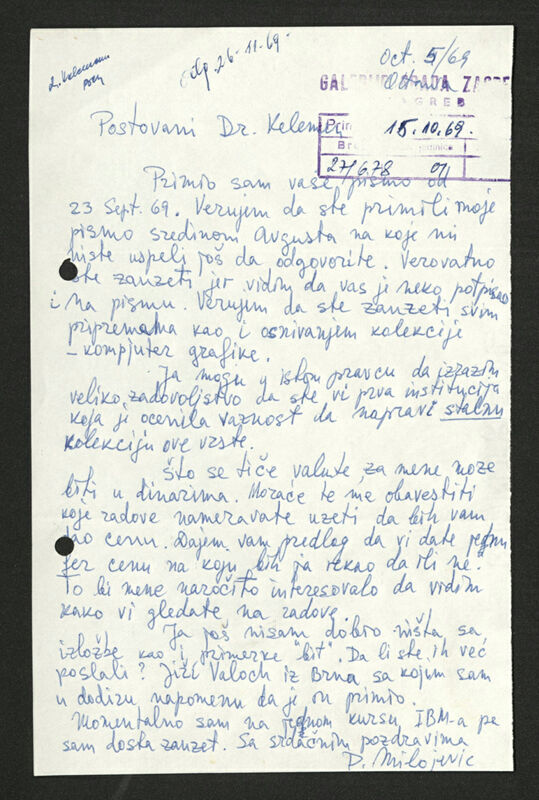 odg. 26-11-69-
Oct. 5/69
Ottawa
GALERIJE GRADA ZAGREBA
ZAGREB
15.10.69.
27/678 01/
Postovani Dr. Kelemen,
Primio sam vaše pismo od
23 Sept. 69. Verujem da ste primili moje
pismo sredinom Avgusta na koje mi
niste uspeli još da odgovorite. Verovatno
ste zanzeti jer vidim da vas je neko potpisao
i na pismu. Verujem da ste zanzeti svim
pripremama kao i osnivanjem kolekcije
- kompjuter grafike.
Ja mogu u istom pravcu da izrazim
veliko zadovoljstvo da ste vi prva institucija
koja je ocenila važnost da napravi stalnu
kolekciju ove vrste.
Što se tiče valute, za mene može
biti u dinarima. Moraće te me obavestiti
koje radove nameravate uzeti da bih vam
dao cenu. Dajem vam predlog da vi date jednu
fer cenu na koju bih ja rekao da ili ne.
To bi mene naročito interesovalo da vidim
kako vi gledate na radove.
Ja još nisam dobio ništa sa
izložbe kao i primerke "bit". Da li ste ih već
poslali? Jiži Valoch iz Brna sa kojim sam
u dodiru napomenu da je on primio.
Momentalno sam na jednom kursu IBM-a pa
sam dosta zanzet. Sa srdačnim pozdravima
P. Milojevic